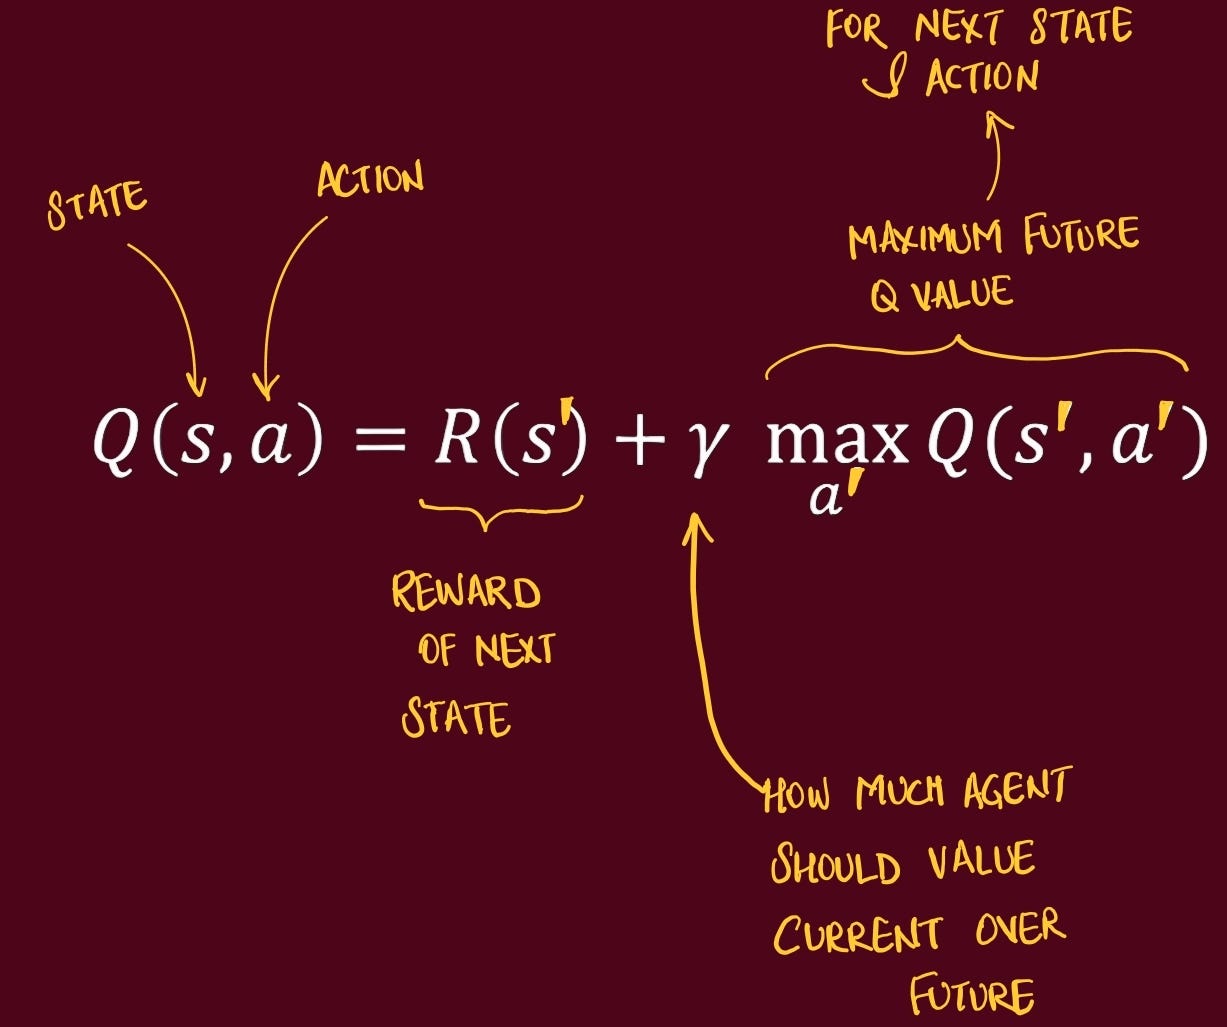 FOR NEXT STATE
& ACTION
STATE
ACTION
MAXIMUM FUTURE
Q VALUE
Q(s, a) = R(s') + γ max Q(s', a')
a'
REWARD
OF NEXT
STATE
HOW MUCH AGENT
SHOULD VALUE
CURRENT OVER
FUTURE